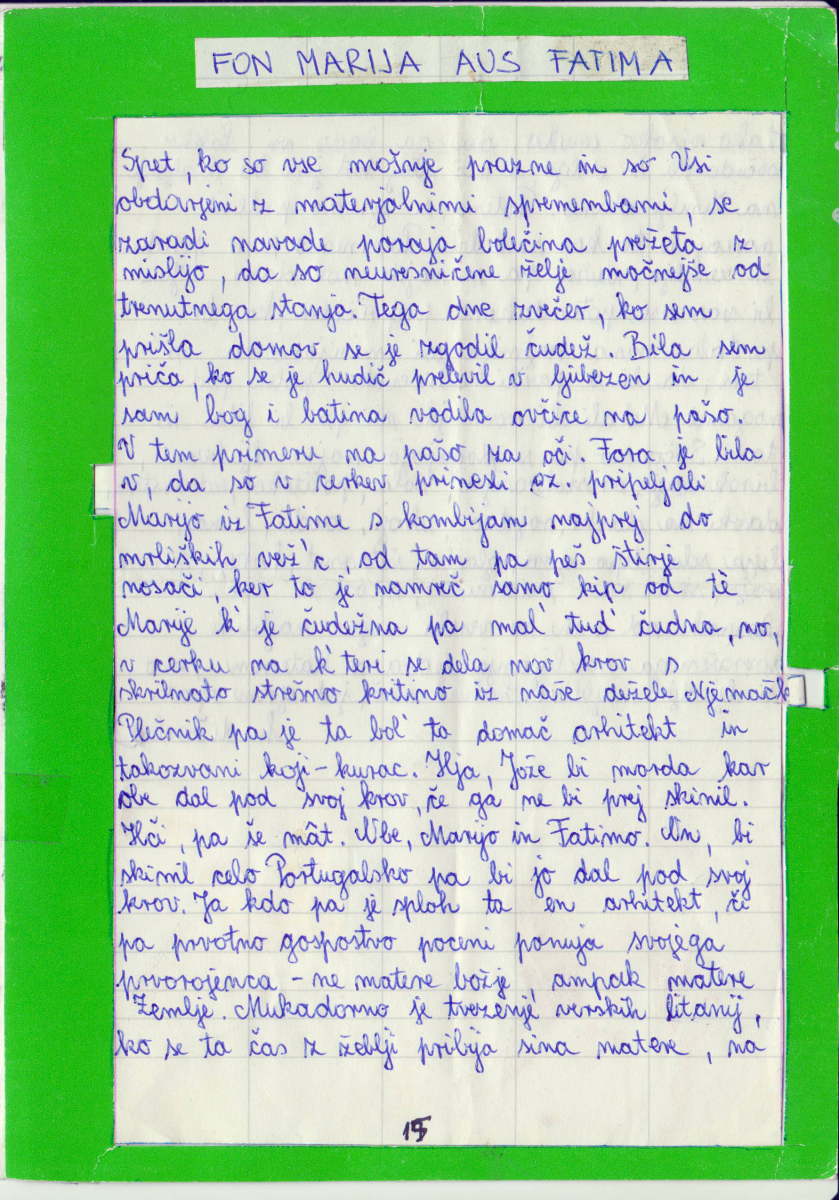 FON MARIJA AUS FATIMA
Spet, ko so vse možnje prazne in so Vsi
obdarjeni z materjalnimi spremembami, se
zaradi navade poraja bolečina prežeta z
mislijo, da so neuresničene želje močnejše od
trenutnega stanja. Tega dne zvečer, ko sem
prišla domov se je zgodil čudež. Bila sem
priča, ko se je hudič prelevil v ljubezen in je
sam bog i batina vodila ovčice na pašo.
V tem primeru na pašo za oči. Fora je bila
v, da so v cerkev prinesli oz. pripeljali
Marijo iz Fatime s kombijam najprej do
mrliških vež'c od tam pa peš štirje
nosači, ker to je namreč samo kip od tè
Marije k' je čudežna pa mal' tud' čudna, no,
v cerku na k'teri se dela nov krov s
skrilnato strešno kritino iz naše dežele Njemačk
Plečnik pa je ta bol' ta domač arhitekt in
takozvani koji-kurac. Hja, Jože bi morda kar
obe dal pod svoj krov, če ga ne bi prej skinil.
Hči, pa še mât. Obe, Marijo in Fatimo. On, bi
skinil celo Portugalsko pa bi jo dal pod svoj
krov. Ja kdo pa je sploh ta en arhitekt, či
pa prvotno gospostvo poceni ponuja svojega
prvorojenca - ne matere božje, ampak matere
Zemlje. Mukadorno je tvezenje verskih litanij,
ko se ta čas z žeblji pribija sina matere, na
15